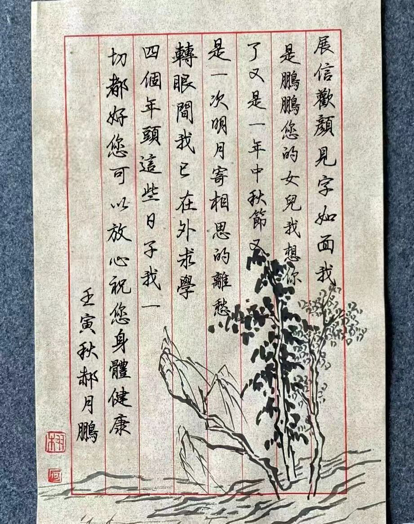 展信歡顏見字如面我
是鵬鵬您的女兒我想你
了又是一年中秋節又
是一次明月寄相思的離愁
轉眼間我已在外求學
四個年頭這些日子我一
切都好您可以放心祝您身體健康
壬寅秋郝月鵬